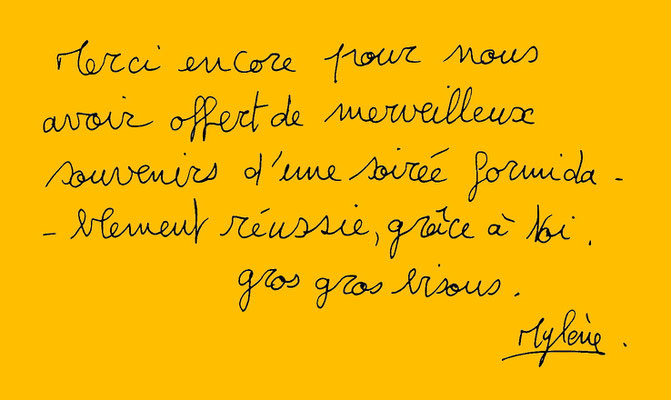 Merci encore pour nous
avoir offert de merveilleux
souvenirs d'une soirée formida -
- blement réussie, grâce à toi.
gros gros bisous.
Mylène.